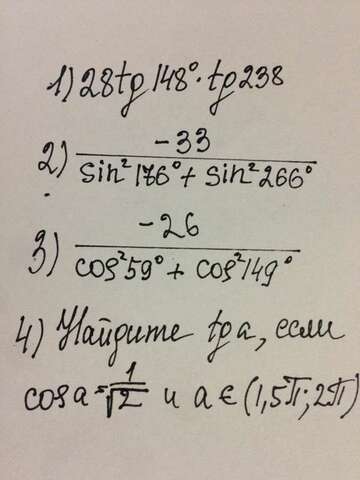 1) 28tg 148° · tg 238
2) -33 / sin² 176° + sin² 266°
3) -26 / cos² 59° + cos² 149°
4) Найдите tg a, если
cos a = 1/√2 и a ∈ (1,5π; 2π)